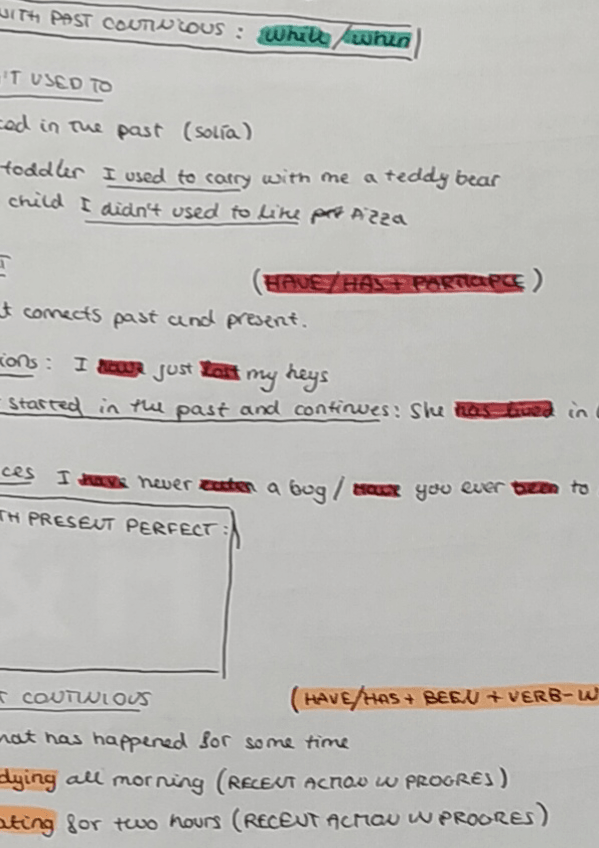 WITH PAST CONTINUOUS : while/when
'T USED TO
ced in the past (solía)
toddler I used to carry with me a teddy bear
child I didn't used to like pizza
(HAVE/HAS + PARTICIPLE)
t connects past and present.
ions: I have just lost my keys
started in the past and continues: She has lived in
ces I have never eaten a bug / Have you ever been to
TH PRESENT PERFECT:
T CONTINUOUS
(HAVE/HAS + BEEN + VERB-IN
hat has happened for some time
dying all morning (RECENT ACTION IN PROGRES)
ating for two hours (RECENT ACTION IN PROGRES)